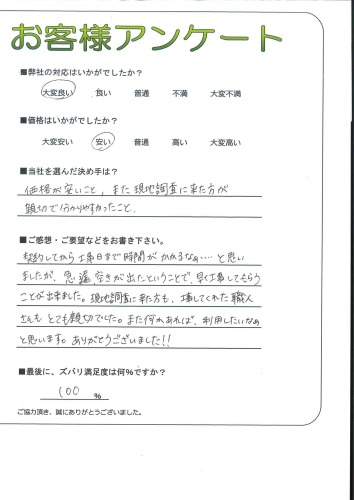 お客様アンケート
■弊社の対応はいかがでしたか？
大変良い 良い 普通 不満 大変不満
■価格はいかがでしたか？
大変安い 安い 普通 高い 大変高い
■当社を選んだ決め手は？
価格が安いこと、また現地調査に来た方が
親切で分かりやすかったこと。
■ご感想・ご要望などをお書き下さい。
契約してから工事日まで時間がかかるなぁ…と思い
ましたが、急遽、空きが出たということで、早く工事してもらう
ことが出来ました。現地調査に来た方も、工事してくれた職人
さんもとても親切でした。また何かあれば、利用したいなぁ
と思います。ありがとうございました!!
■最後に、ズバリ満足度は何％ですか？
100 %
ご協力頂き、誠にありがとうございました。